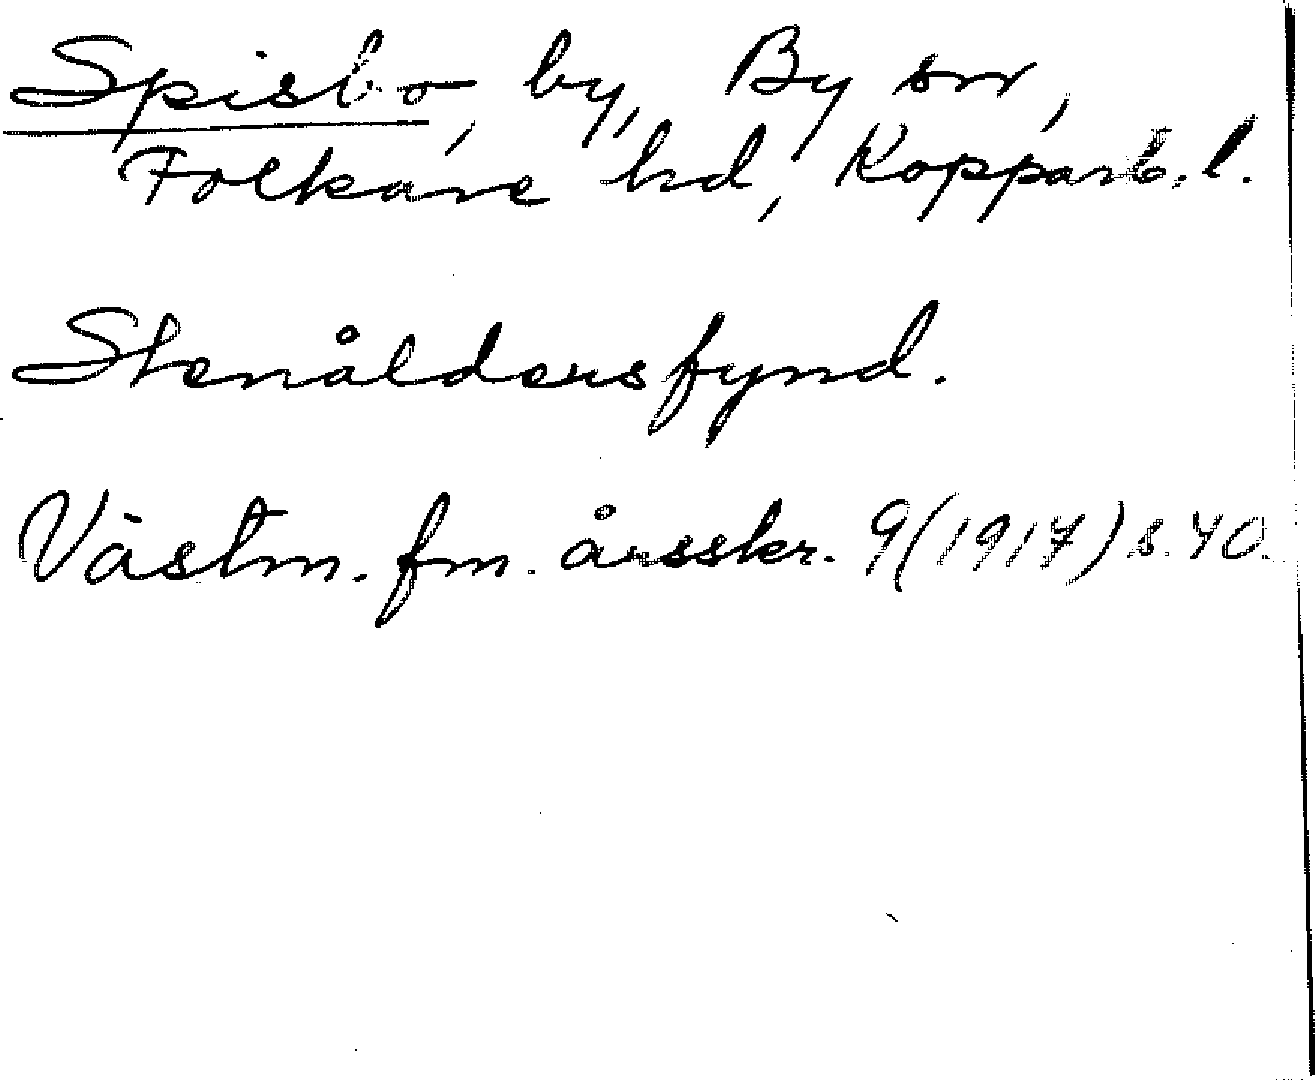 Spisbo, by, By sn,
Folkare hd, Kopparb. l.
Stenåldersfynd.
Västm. fm. årsskr. 9(1917) s. 40.